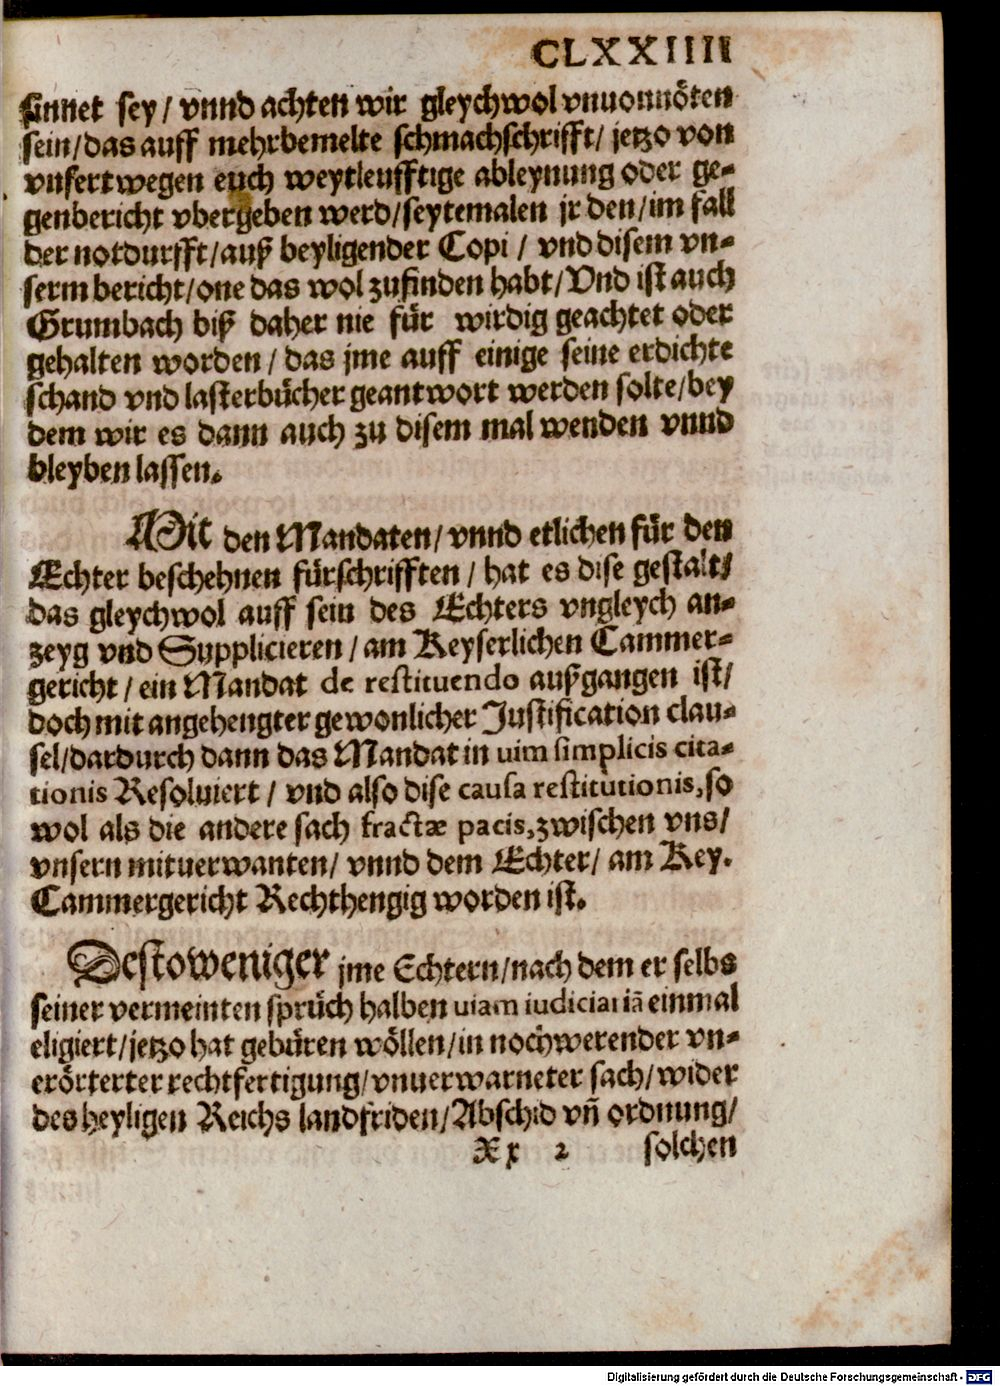 CLXXIIII
sinnet sey / vnnd achten wir gleychwol vnuonnöten
sein/das auff mehrbemelte schmachschrifft/ jetzo von
vnsertwegen euch weytleufftige ableynung oder ge-
genbericht vbergeben werd/seytemalen jr den/im fall
der notdurfft/auß beyligender Copi / vnd disem vn-
serm bericht/one das wol zufinden habt/Vnd ist auch
Grumbach biß daher nie für wirdig geachtet oder
gehalten worden / das jme auff einige seine erdichte
schand vnd lasterbücher geantwort werden solte/bey
dem wir es dann auch zu disem mal wenden vnnd
bleyben lassen.
Mit den Mandaten/ vnnd etlichen für den
Echter beschehnen fürschrifften / hat es dise gestalt/
das gleychwol auff sein des Echters vngleych an-
zeyg vnd Supplicieren / am Keyserlichen Cammer-
gericht / ein Mandat de restituendo außgangen ist/
doch mit angehengter gewonlicher Justification clau-
sel/dardurch dann das Mandat in uim simplicis cita-
tionis Resoluiert / vnd also dise causa restitutionis, so
wol als die andere sach fractæ pacis, zwischen vns/
vnsern mituerwanten/ vnnd dem Echter/ am Key.
Cammergericht Rechthengig worden ist.
Destoweniger jme Echtern/nach dem er selbs
seiner vermeinten sprüch halben uiam iudiciariā einmal
eligiert/jetzo hat gebüren wöllen/in nochwerender vn-
erörterter rechtfertigung/vnuerwarneter sach/wider
des heyligen Reichs landfriden/Abschid vñ ordnung/
Xx 2 solchen
Digitalisierung gefördert durch die Deutsche Forschungsgemeinschaft - DFG